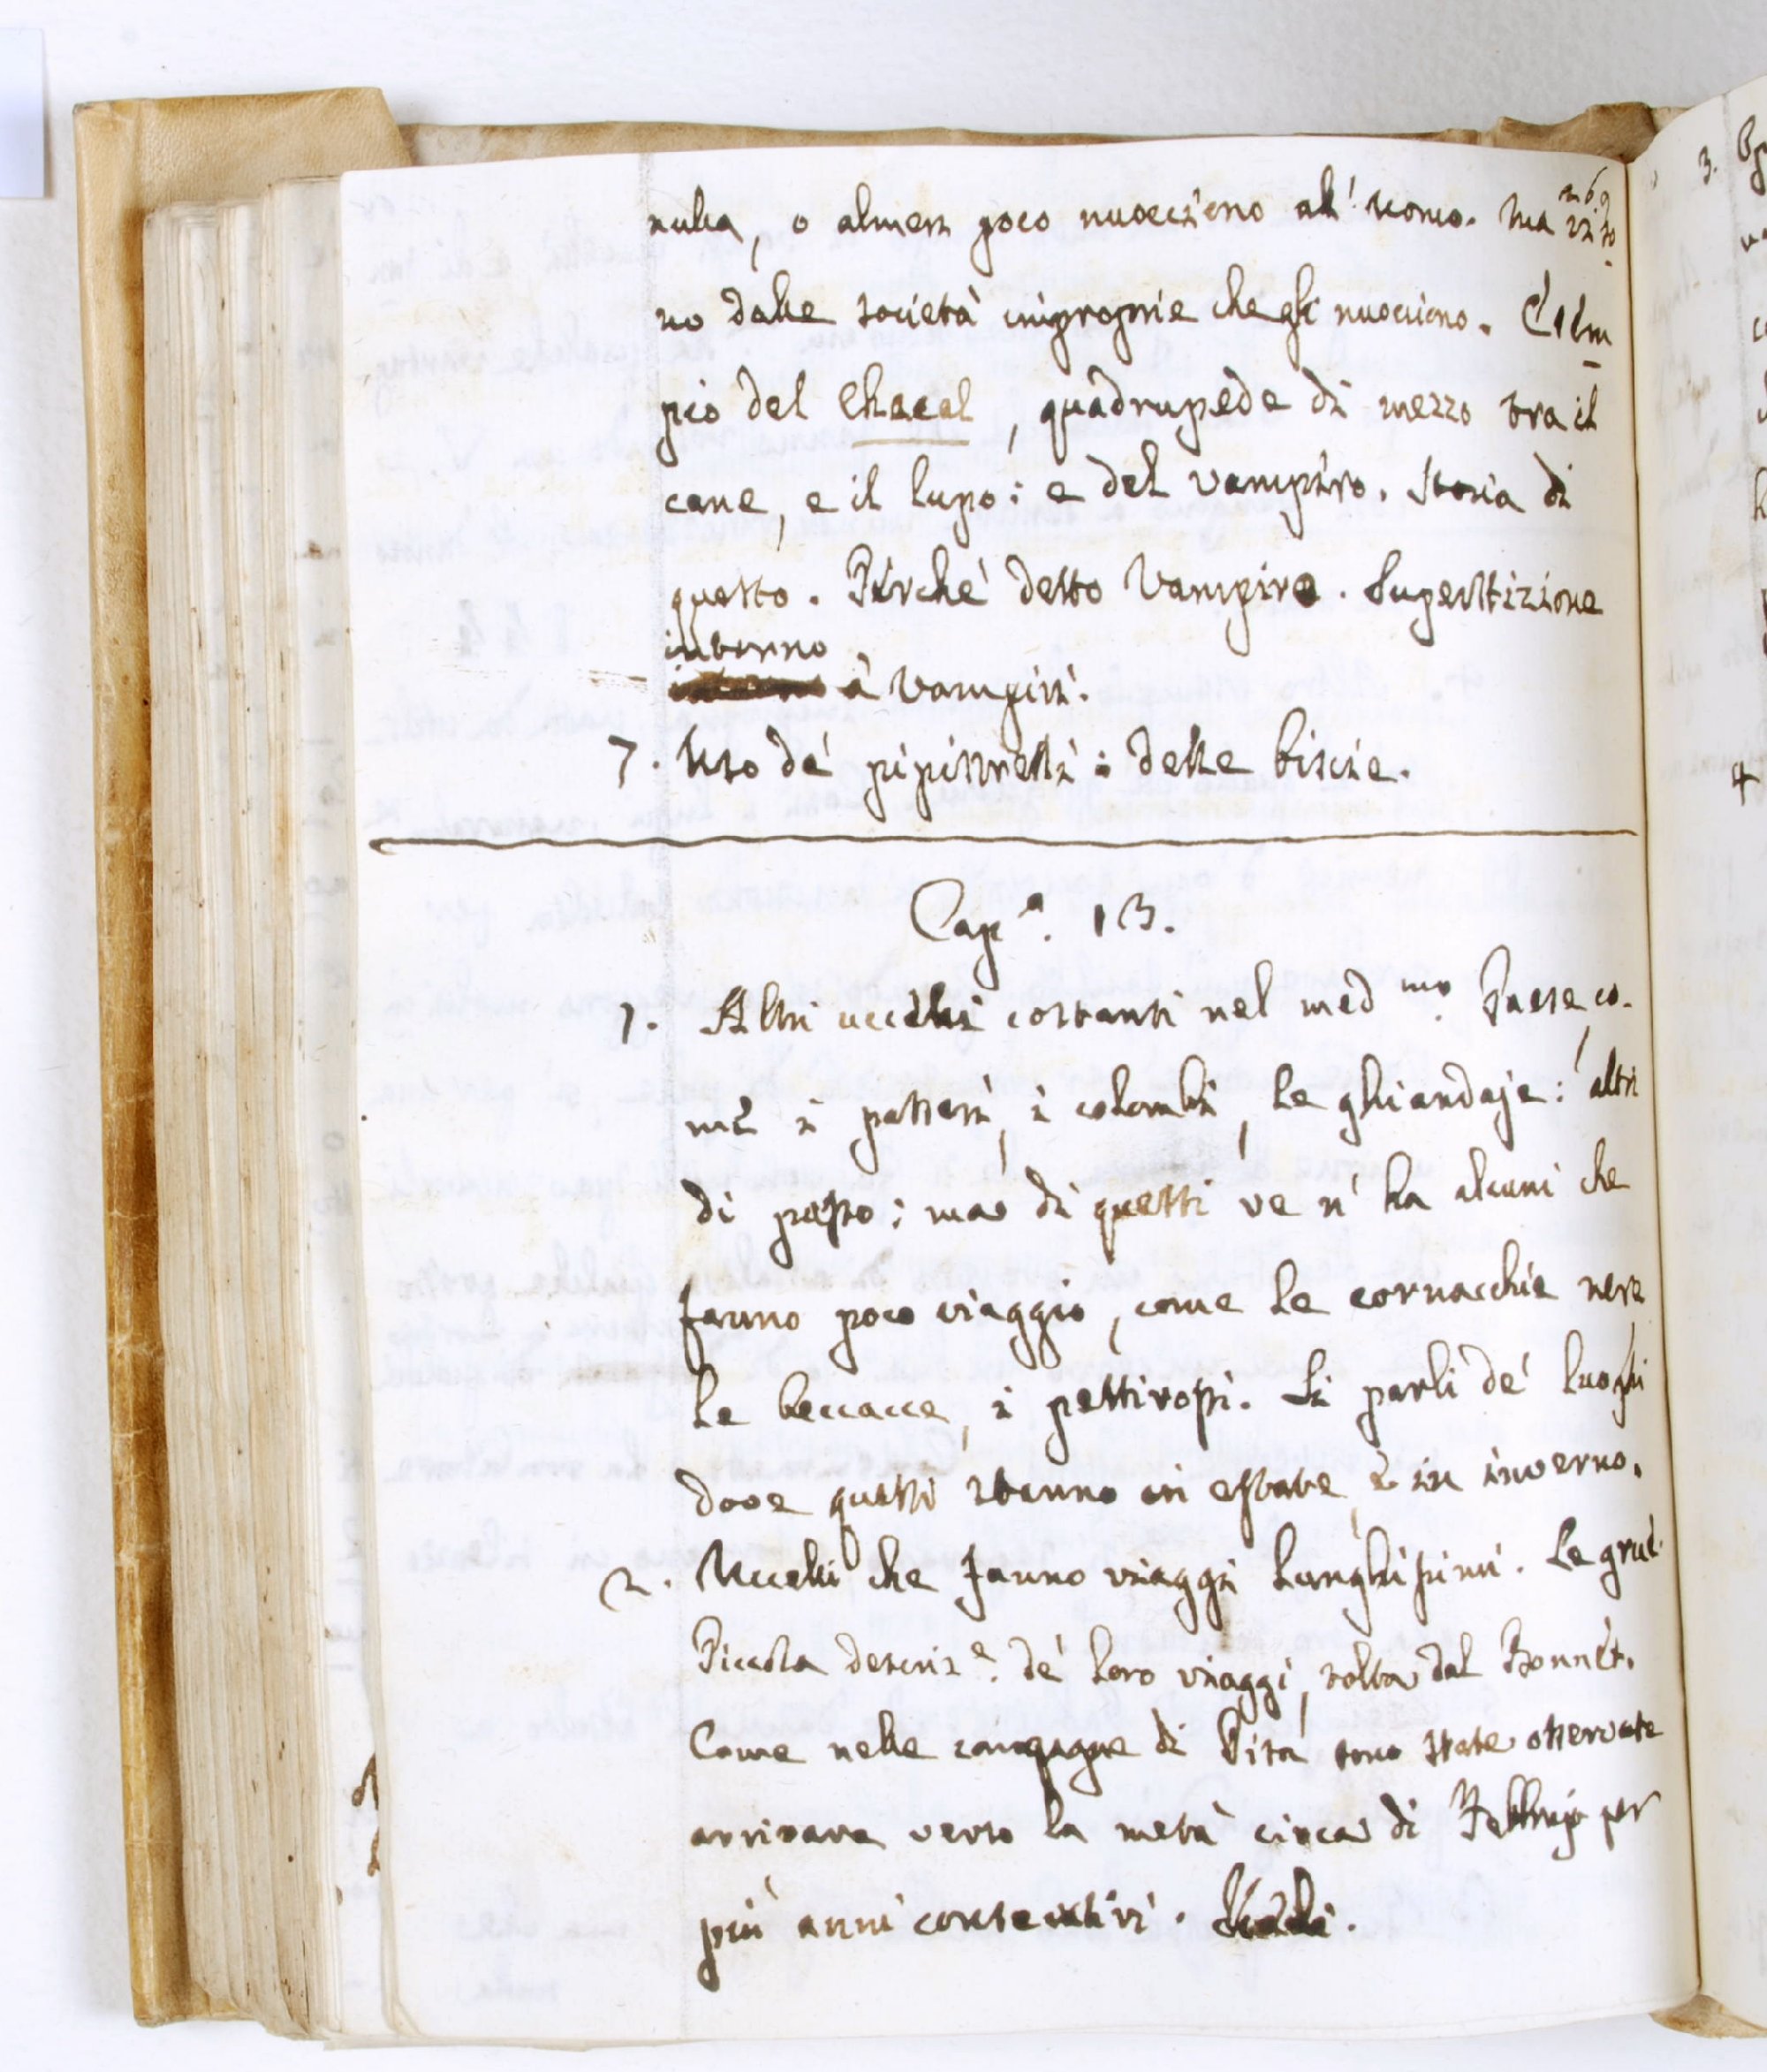 nulla, o almen poco nuocciono all' uomo. Ma vi so
no delle società improprie che gli nuociono. Esem
pio del Chacal, quadrupede di mezzo tra il
cane, e il lupo: e del vampiro. Storia di
questo. Perchè detto Vampiro. Superstizione
intorno
a' Vampiri.
7. Uso de' pipistrelli: delle biscie.
Cap.º 13.
1. Altri uccelli costanti nel med.mo Paese, co-
me i passeri, i colombi, le ghiandaje: altri
di passo: ma di questi ve n' ha alcuni che
fanno poco viaggio, come le cornacchie nere
le beccacce, i pettirossi. Si parli de' luoghi
dove questi stanno in estate e in inverno.
2. Uccelli che fanno viaggi lunghissimi. Le grui.
Piccola descriz.e de' loro viaggi, tolta dal Bonnet.
Come nelle campagne di Pisa sono state osservate
arrivare verso la metà circa di Febbrajo per
più anni consecutivi.
3.